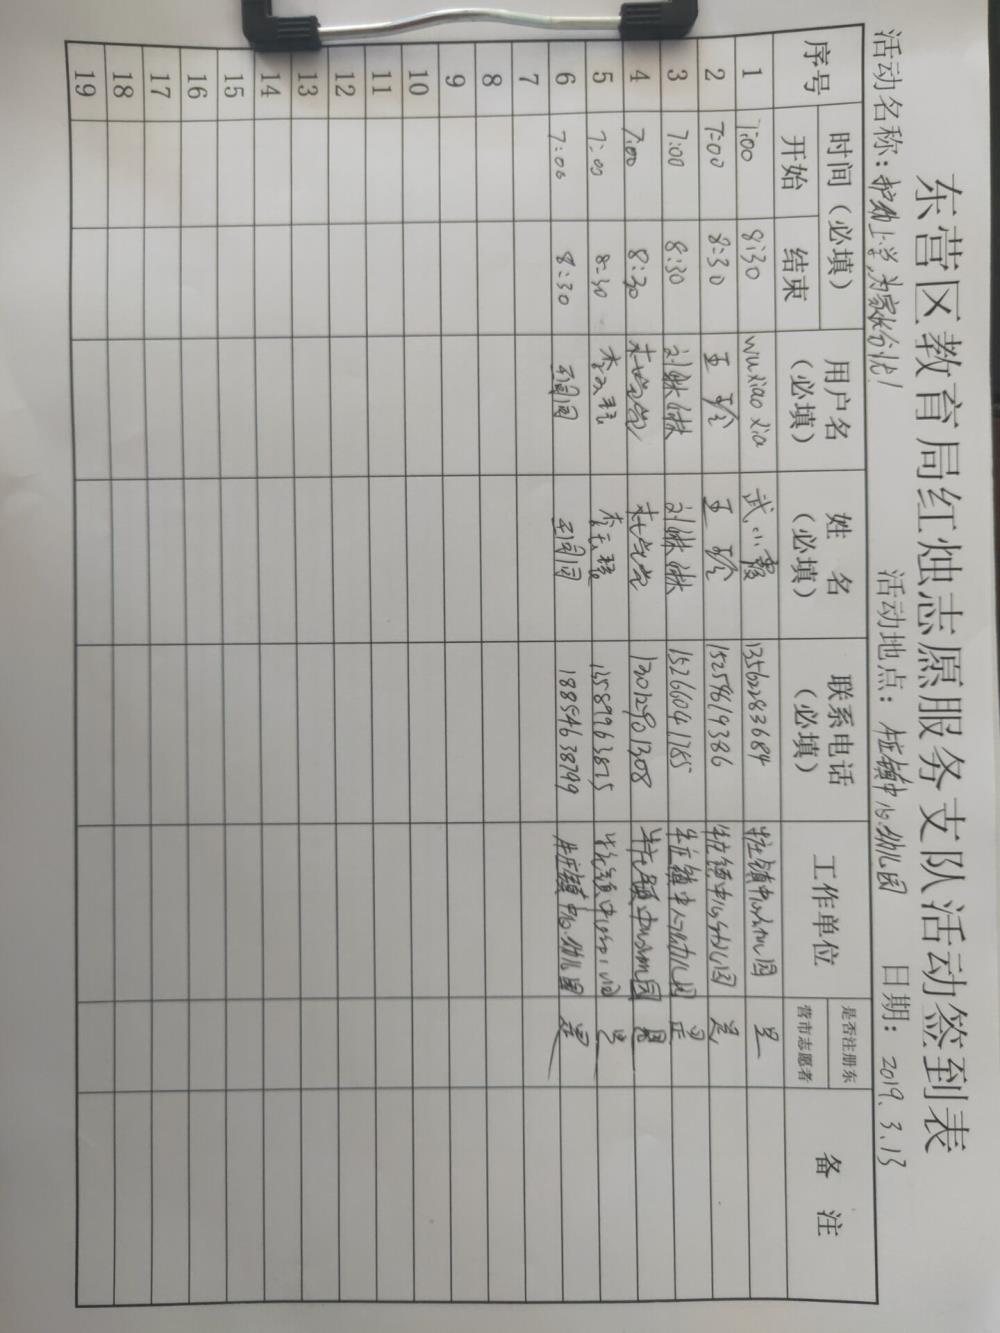 东营区教育局红烛志愿服务支队活动签到表
活动名称：护幼上学，为家长分忧！ 活动地点：牛庄镇中心幼儿园 日期：2019.3.13
序号 时间（必填） 用户名（必填） 姓 名（必填） 联系电话（必填） 工作单位 是否注册东营市志愿者 备 注
开始 结束
1 7:00 8:30 wuxiaoxia 武小霞 13562283684 牛庄镇中心幼儿园 是
2 7:00 8:30 王 玲 王 玲 15254619386 牛庄镇中心幼儿园 是
3 7:00 8:30 刘姝姝 刘姝姝 15266041785 牛庄镇中心幼儿园 是
4 7:00 8:30 13012901308 牛庄镇中心幼儿园 是
5 7:00 8:30 13589963825 牛庄镇中心幼儿园 是
6 7:00 8:30 18854638799 牛庄镇中心幼儿园 是
7
8
9
10
11
12
13
14
15
16
17
18
19